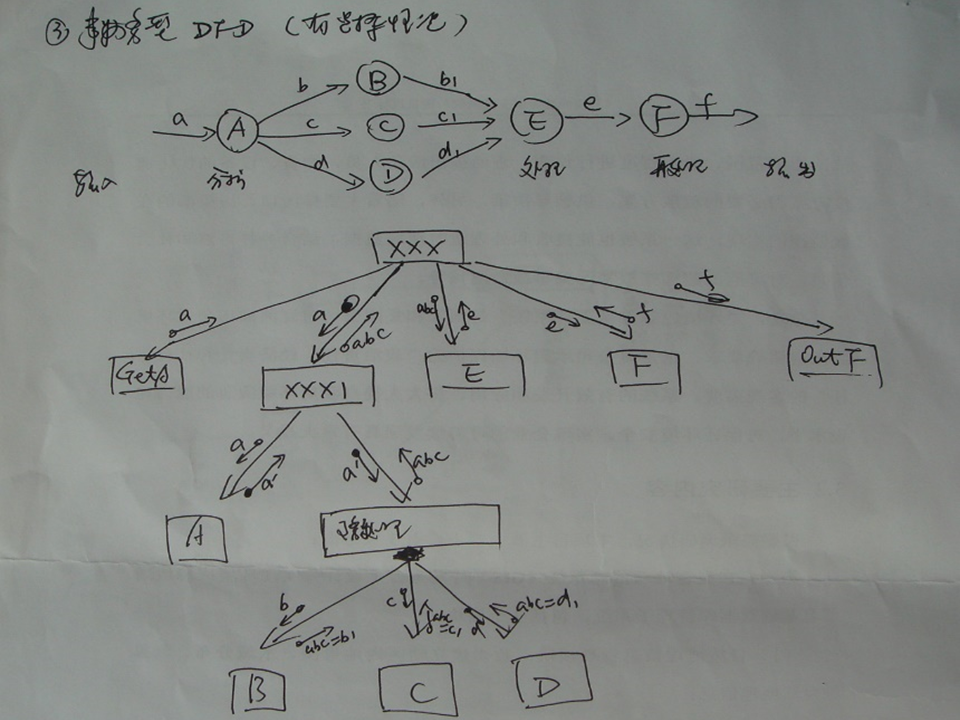 ③ 事务类型 DFD (有选择性况)
b B b₁
a A c C c₁ E e F f
d D d₁
输入 分析 处理 再处理 输出
XXX
a a abc abc e e f f
GetA XXX1 E F Out F
a a' a' abc
A
b abc=b₁ c abc=c₁ d abc=d₁
B C D